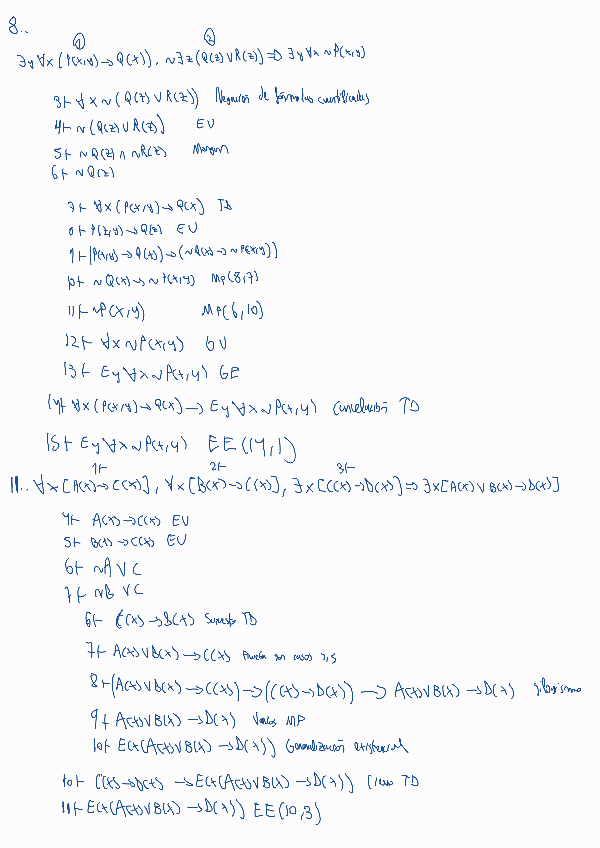 8..
① ②
∃y∀x(P(x,y)→Q(x)), ~∃z(Q(z)∨R(z))⇒∃y∀x~P(x,y)
3⊢ ∀x~(Q(z)∨R(z)) Negación de fórmulas cuantificadas
4⊢ ~(Q(z)∨R(z)) EU
5⊢ ~Q(z)∧~R(z) Morgan
6⊢ ~Q(z)
7⊢ ∀x(P(x,y)→Q(x) TD
8⊢ P(z,y)→Q(z) EU
9⊢(P(x,y)→Q(x))→(~Q(x)→~P(x,y))
10⊢ ~Q(x)→~P(x,y) MP(8,7)
11⊢ ~P(x,y) MP(6,10)
12⊢ ∀x~P(x,y) GU
13⊢ Ey∀x~P(x,y) GE
14⊢ ∀x(P(x,y)→Q(x)→Ey∀x~P(x,y) Cancelación TD
15⊢ Ey∀x~P(x,y) EE(14,1)
1⊢ 2⊢ 3⊢
11.. ∀x[A(x)→C(x)], ∀x[B(x)→C(x)], ∃x[C(x)→D(x)]⇒∃x[A(x)∨B(x)→D(x)]
4⊢ A(x)→C(x) EU
5⊢ B(x)→C(x) EU
6⊢ ~A∨C
7⊢ ~B∨C
6⊢ C(x)→D(x) Supuesto TD
7⊢ A(x)∨B(x)→C(x) Prueba por casos 4,5
8⊢(A(x)∨B(x)→C(x))→((C(x)→D(x))→A(x)∨B(x)→D(x) Silogismo
9⊢ A(x)∨B(x)→D(x) Varios MP
10⊢ Ex(A(x)∨B(x)→D(x)) Generalización existencial
10⊢ C(x)→D(x)→Ex(A(x)∨B(x)→D(x)) Cierro TD
11⊢Ex(A(x)∨B(x)→D(x)) EE(10,3)